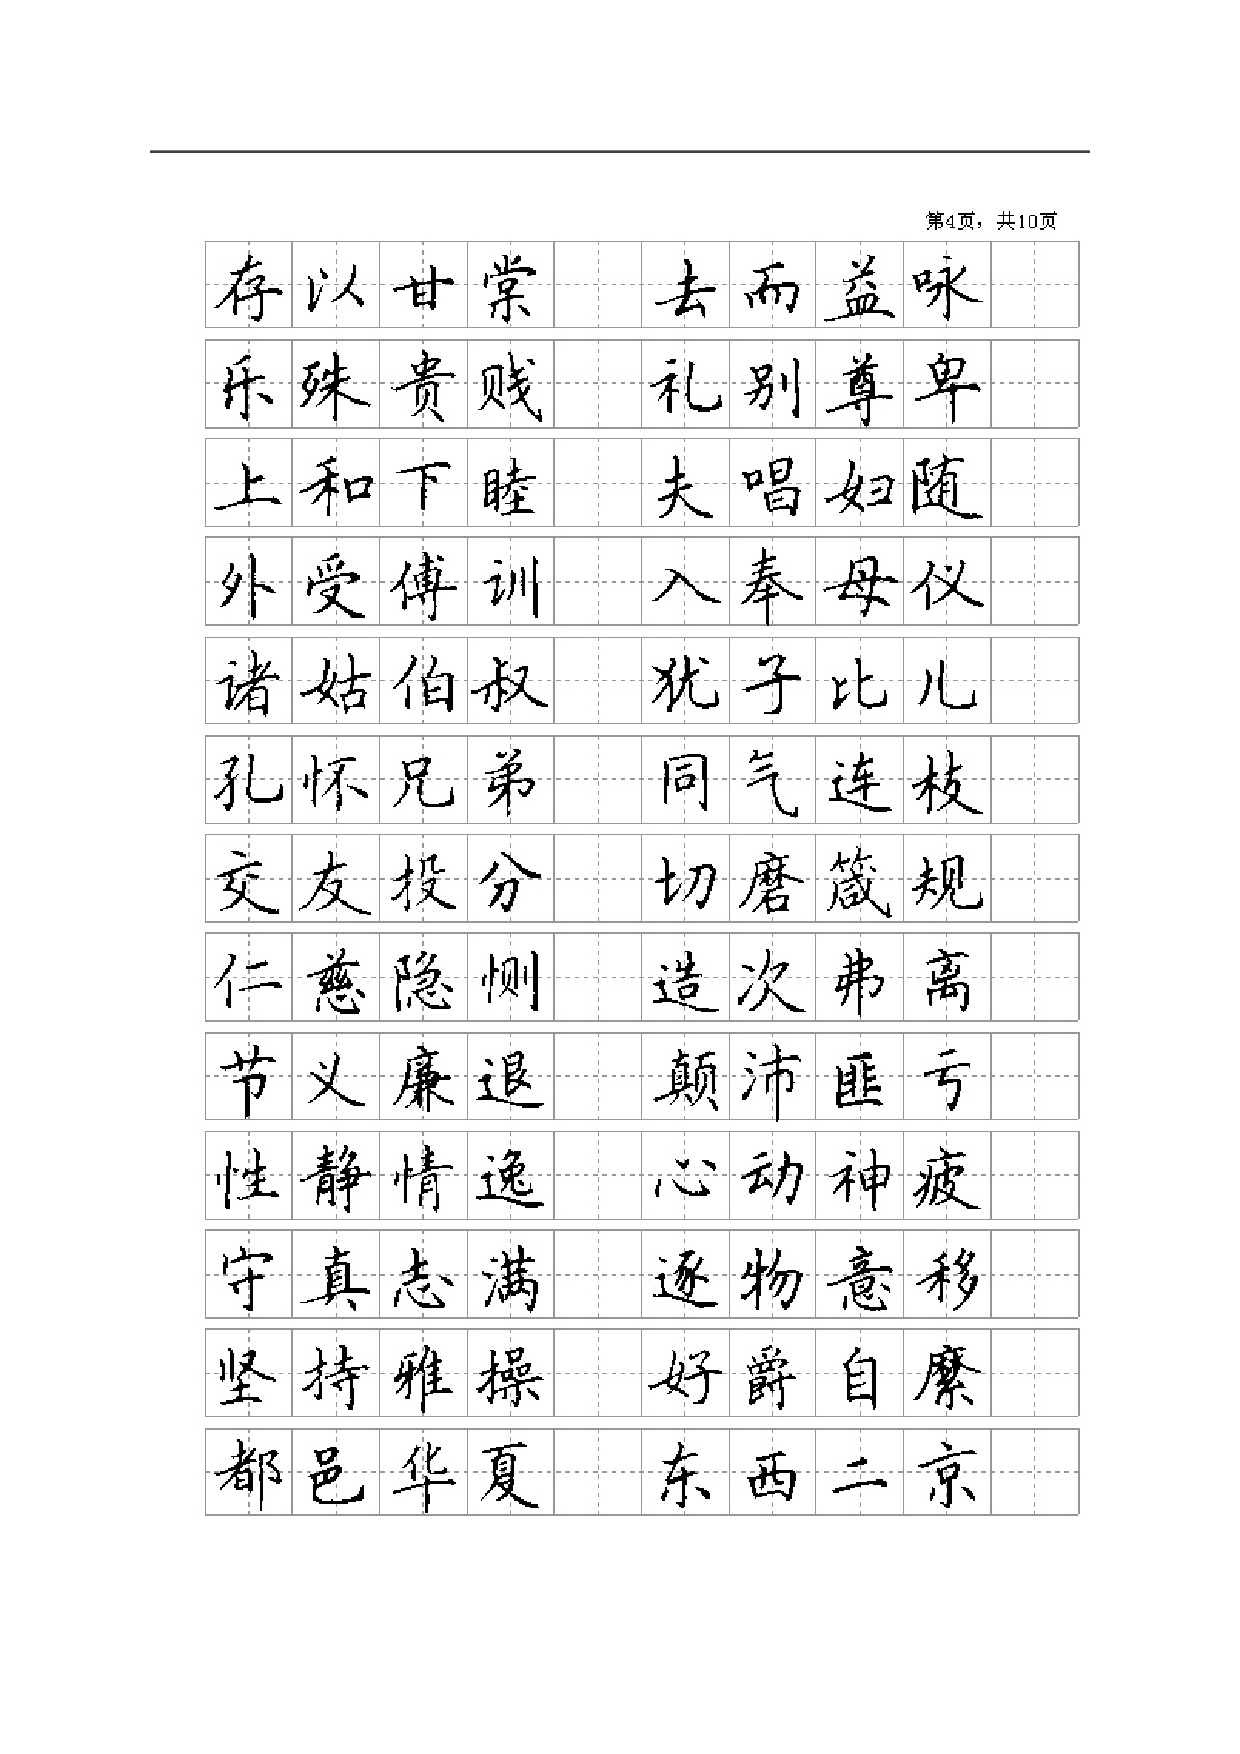 第4页，共10页
存以甘棠 去而益咏
乐殊贵贱 礼别尊卑
上和下睦 夫唱妇随
外受傅训 入奉母仪
诸姑伯叔 犹子比儿
孔怀兄弟 同气连枝
交友投分 切磨箴规
仁慈隐恻 造次弗离
节义廉退 颠沛匪亏
性静情逸 心动神疲
守真志满 逐物意移
坚持雅操 好爵自縻
都邑华夏 东西二京